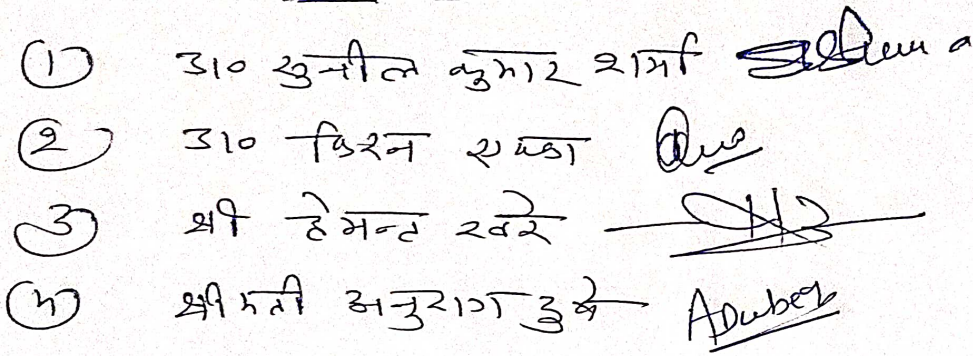 ① डा० सुनील कुमार शर्मा
② डा० किरन
③ श्री हेमन्त खरे
④ श्रीमती अनुराग दुबे ADubey